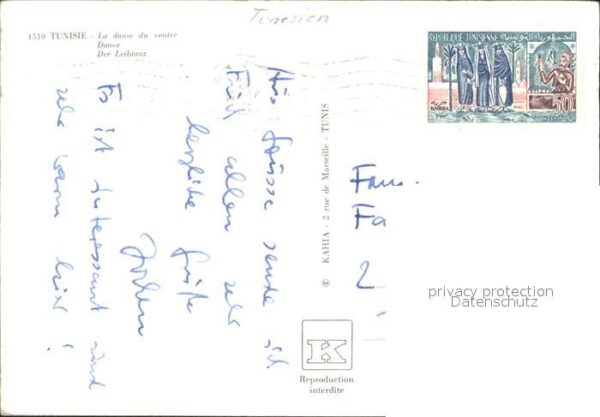 Tunesien
1510 TUNISIE - La danse du ventre
Dance
Der Leibtenz
REPUBLIQUE TUNISIENNE الجمهورية التونسية
50
sende ich
Euch allen sehr
herzliche Grüße
Jochen
Es ist interessant und
sehr warm hier!
© KAHIA - 2 rue de Marseille - TUNIS
Fam.
Fa
2
privacy protection
Datenschutz
K
Reproduction
interdite